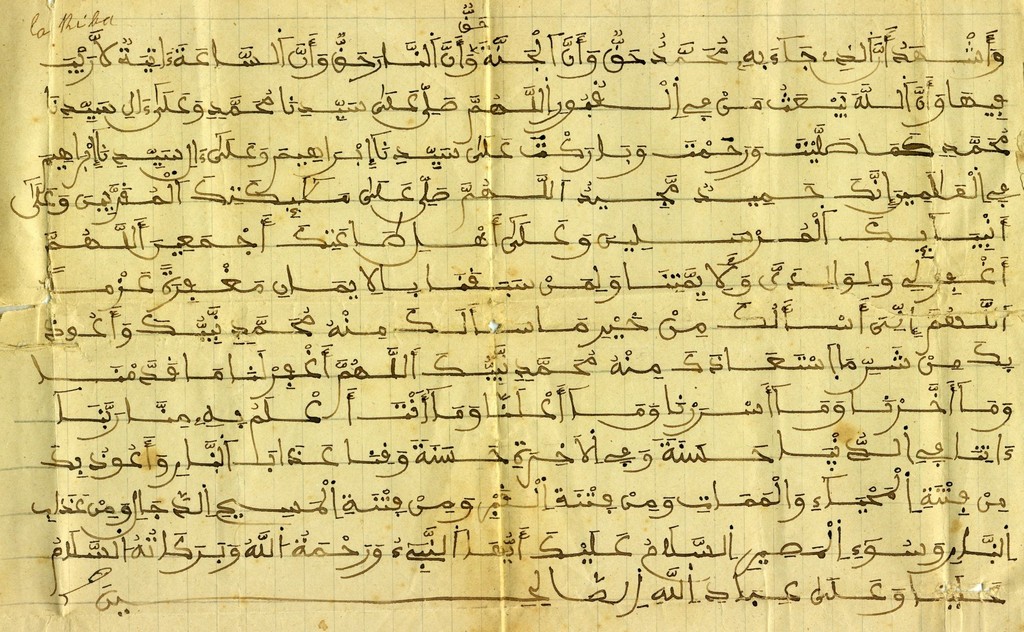 la Riba
حَقٌّ
وَأَشْهَدُ أَنَّ الذِے جَاءَ بِهِ مُحَمَّدٌ حَقٌّ وَأَنَّ الْجَنَّةَ وَأَنَّ النَّارَ حَقٌّ وَأَنَّ السَّاعَةَ ءَاتِيَةٌ لاَّ رَيْبَ
فِيهَا وَأَنَّ اللَّهَ يَبْعَثُ مَن فِے الْقُبُورِ اللَّهُمَّ صَلِّ عَلَى سَيِّدِنَا مُحَمَّدٍ وَعَلَى ءَالِ سَيِّدِنَا
مُحَمَّدٍ كَمَا صَلَّيْتَ وَرَحِمْتَ وَبَارَكْتَ عَلَى سَيِّدِنَا إِبْرَاهِيمَ وَعَلَى ءَالِ سَيِّدِنَا إِبْرَاهِيمَ
فِے الْعَالَمِينَ إِنَّكَ حَمِيدٌ مَّجِيدٌ اللَّهُمَّ صَلِّ عَلَى مَلَئِكَتِكَ الْمُقَرَّبِينَ وَعَلَى
أَنْبِيَائِكَ الْمُرْسَلِينَ وَعَلَى أَهْلِ طَاعَتِكَ أَجْمَعِينَ اللَّهُمَّ
أَغْفِرْ لِے وَلِوَالِدَيَّ وَلِأَيِمَّتِنَا وَلِمَن سَبَقَنَا بِالإِيمَانِ مَغْفِرَةً عَزْمًا
اللَّهُمَّ إِنِّے أَسْأَلُكَ مِنْ خَيْرِ مَا سَأَلَكَ مِنْهُ مُحَمَّدٌ نَّبِيُّكَ وَأَعُوذُ
بِكَ مِن شَرِّ مَا اسْتَعَاذَكَ مِنْهُ مُحَمَّدٌ نَّبِيُّكَ اللَّهُمَّ أَغْفِرْ لَنَا مَا قَدَّمْنَا
وَمَا أَخَّرْنَا وَمَا أَسْرَرْنَا وَمَا أَعْلَنَّا وَمَا أَنْتَ أَعْلَمُ بِهِ مِنَّا رَبَّنَا
ءَاتِنَا فِے الدُّنْيَا حَسَنَةً وَفِے الاَخِرَةِ حَسَنَةً وَقِنَا عَذَابَ النَّارِ وَأَعُوذُ بِكَ
مِن فِتْنَةِ الْمَحْيَاءِ وَالْمَمَاتِ وَمِن فِتْنَةِ الْقَبْرِ وَمِن فِتْنَةِ الْمَسِيحِ الدَّجَّالِ وَمِن عَذَابِ
النَّارِ وَسُوءِ الْمَصِيرِ السَّلاَمُ عَلَيْكَ أَيُّهَا النَّبِيءُ وَرَحْمَةُ اللَّهِ وَبَرَكَاتُهُ السَّلاَمُ
عَلَيْنَا وَعَلَى عِبَادِ اللَّهِ الصَّالِحِينَ